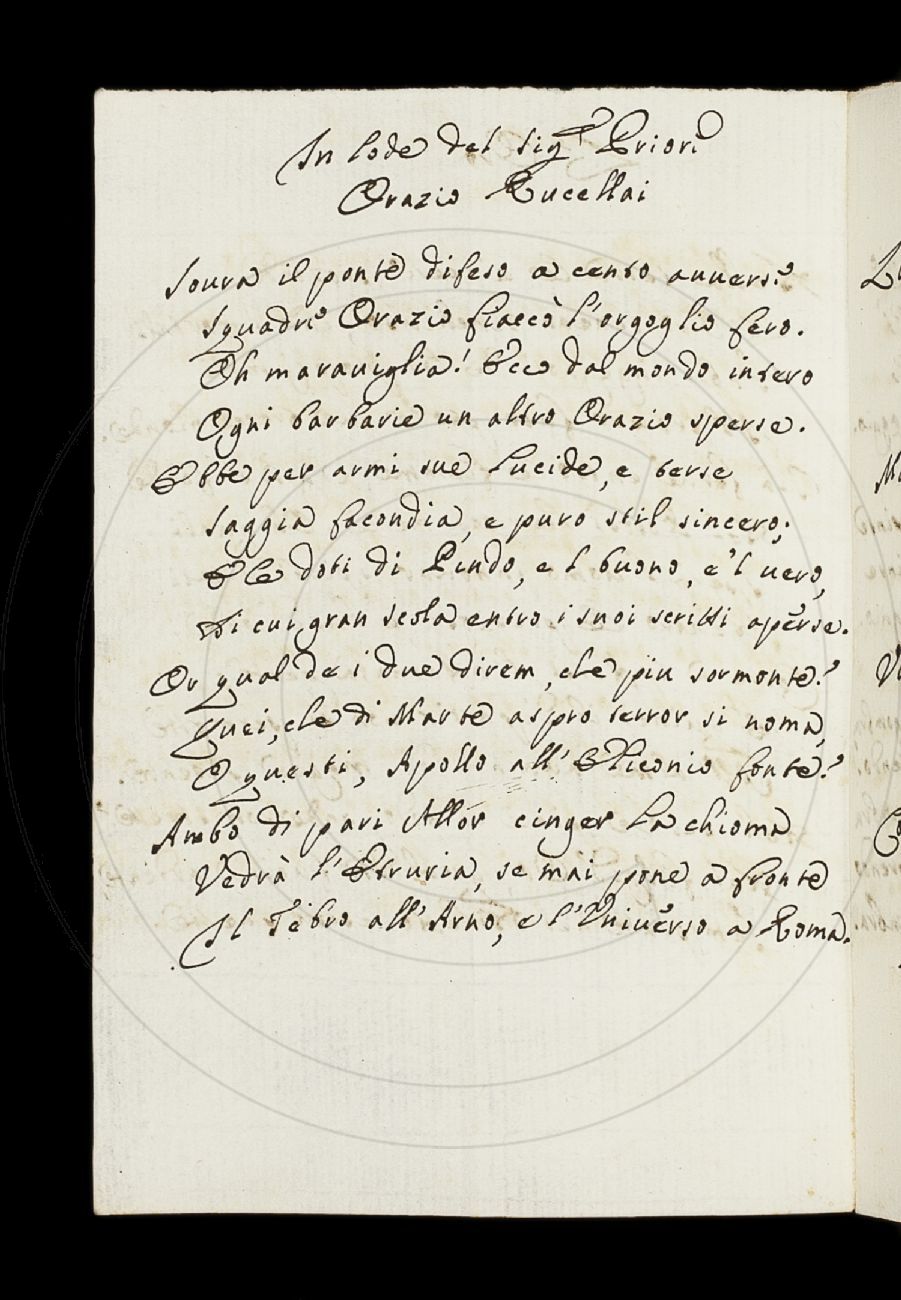 In lode del Sig.r Priore
Orazio Rucellai
Soura il ponte difeso a cento auuerse
Squadre Orazio fiaccò l'orgoglio fero.
Oh marauiglia! Ecco dal mondo intero
Ogni barbarie un altro Orazio sperse.
Ebbe per armi sue lucide, e terse
Saggia facondia, e puro stil sincero;
E le doti di Pindo, e 'l buono, e 'l uero,
Di cui gran scola entro i suoi scritti aperse.
Or qual de i due direm, che piu sormonte?
Quei, che di Marte aspro terror si noma,
O questi, Apollo all' Eliconio fonte?
Ambo di pari Allor cinger la chioma
Vedrà l'Etruria, se mai pone a fronte
Il Tebro all' Arno, e l'Vniuerso a Roma.